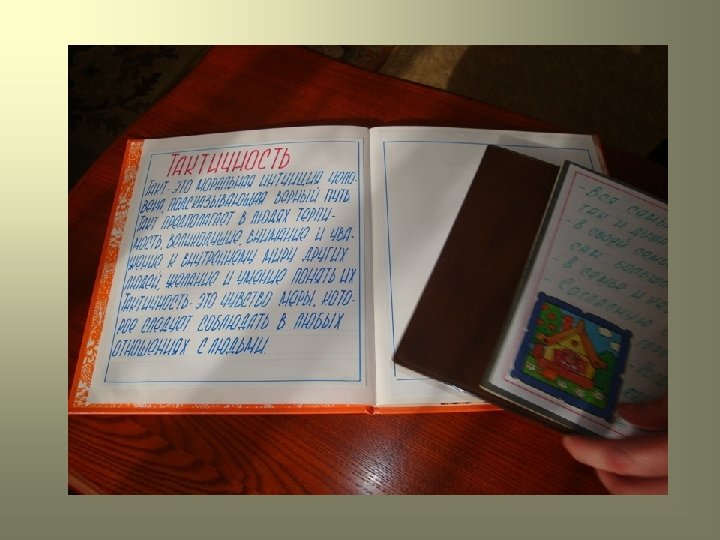 Тактичность
Такт - это моральная интуиция чело-
века, подсказывающая верный путь.
Такт предполагает в людях терпи-
мость, великодушие, внимание и ува-
жение к внутреннему миру других
людей, желание и умение понять их
Тактичность - это чувство меры, кото-
рое следует соблюдать в любых
отношениях с людьми.
- Вся семь
так и душа
- В своей сем
сам большо
- В семье и